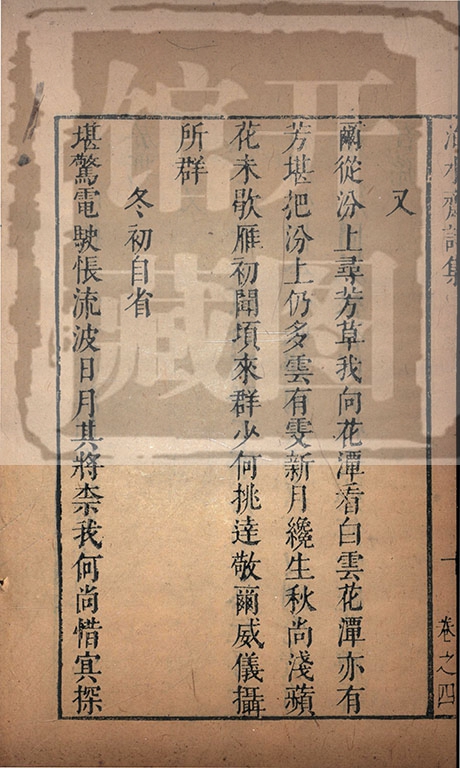 又
爾從汾上尋芳草我向花潭看白雲花潭亦有
芳堪把汾上仍多雲有雯新月纔生秋尚淺蘋
花未歇雁初聞頃來群少何挑達敬爾威儀攝
所群
冬初自省
堪驚電駛悵流波日月其將柰我何尚惜寅探
卷之四